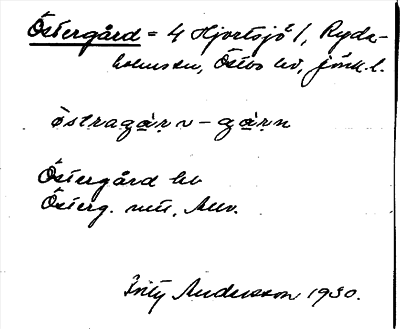 Östergård = 4 Hjortsjö 1, Ryda-
holms sn, Östbo hd, Jönk. l.
östragạ̊ṛn - gạ̊ṛn
Östergård hd
Österg.
Fritz Andersson 1930.